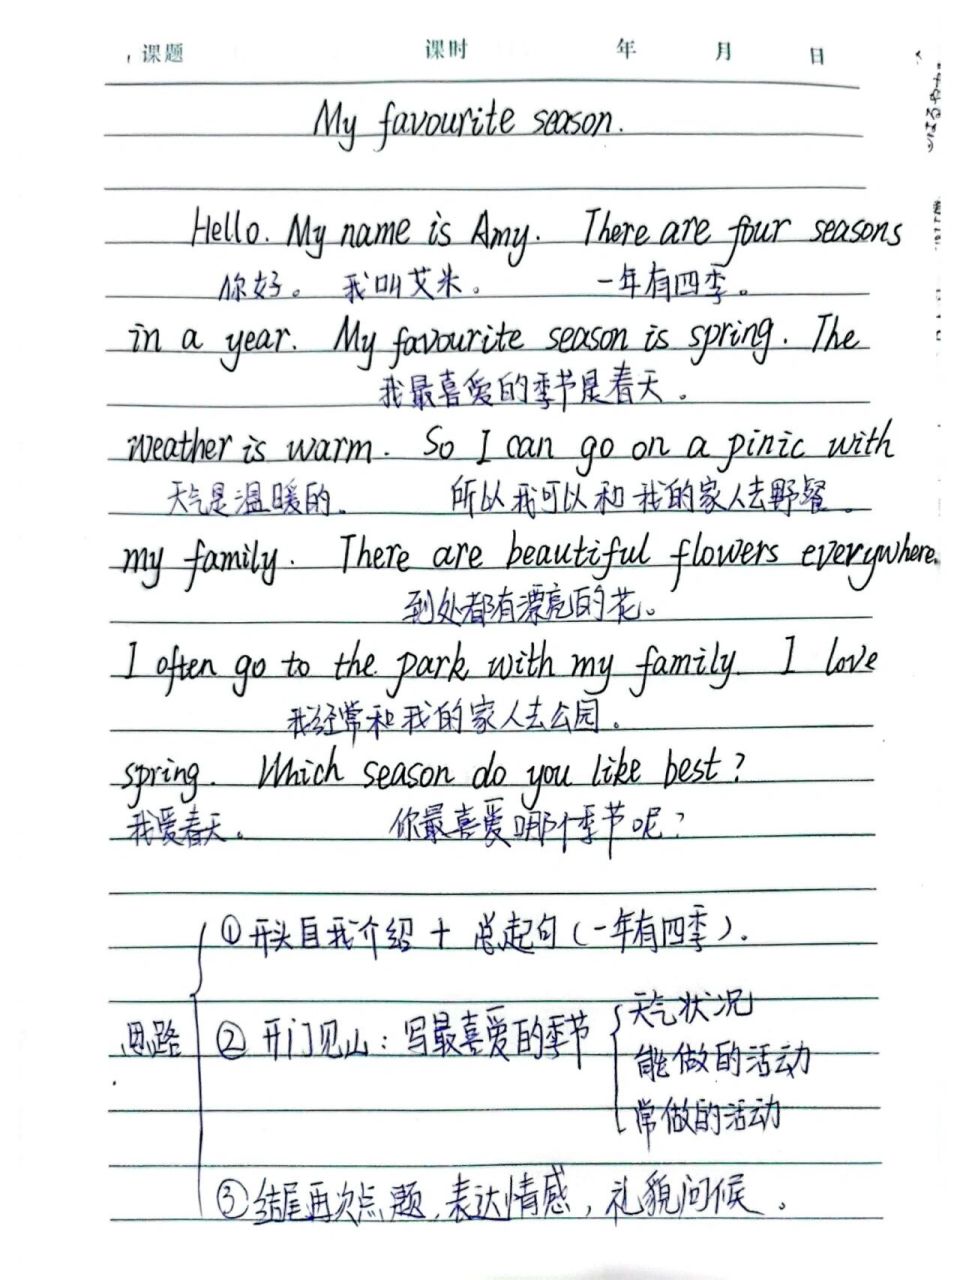 课题 课时 年 月 日
My favourite season.
Hello. My name is Amy. There are four seasons
你好。 我叫艾米。 一年有四季。
in a year. My favourite season is spring. The
我最喜爱的季节是春天。
weather is warm. So I can go on a pinic with
天气是温暖的。 所以我可以和我的家人去野餐。
my family. There are beautiful flowers everywhere.
到处都有漂亮的花。
I often go to the park with my family. I love
我经常和我的家人去公园。
spring. Which season do you like best?
我爱春天。 你最喜爱哪个季节呢?
①开头自我介绍 + 总起句(一年有四季).
思路 ②开门见山:写最喜爱的季节
天气状况
能做的活动
常做的活动
③结尾再次点题,表达情感,礼貌问候。